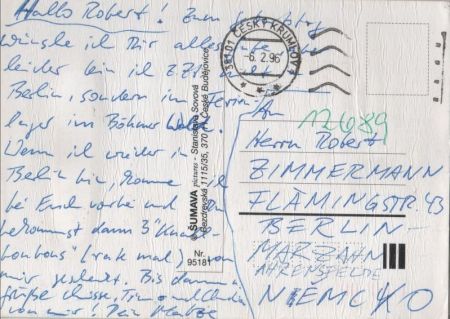 Hallo Robert! Zum Geburtstag
wünsche ich Dir alles Gute
leider bin ich z.Z. nicht in
Berlin, sondern im Ferien-
lager im Böhmer Wald.
Wenn ich wieder in
Berlin bin, komme ich
bei Euch vorbei und Du
bekommst dann 3 "Knall-
bonbons" (rate mal) von
mir geschenkt. Bis dann
grüße
von mir! Dein
381 01 ČESKÝ KRUMLOV 1
-6.2.96
ŠUMAVA pictures - Stanislava Sovová
Bezdrevská 1115/35, 370 11 České Budějovice
Nr.
95181
12689
An
Herrn Robert
ZIMMERMANN
FLÄMINGSTR. 43
BERLIN-
MARZAHN
AHRENSFELDE
NIĚMCKO